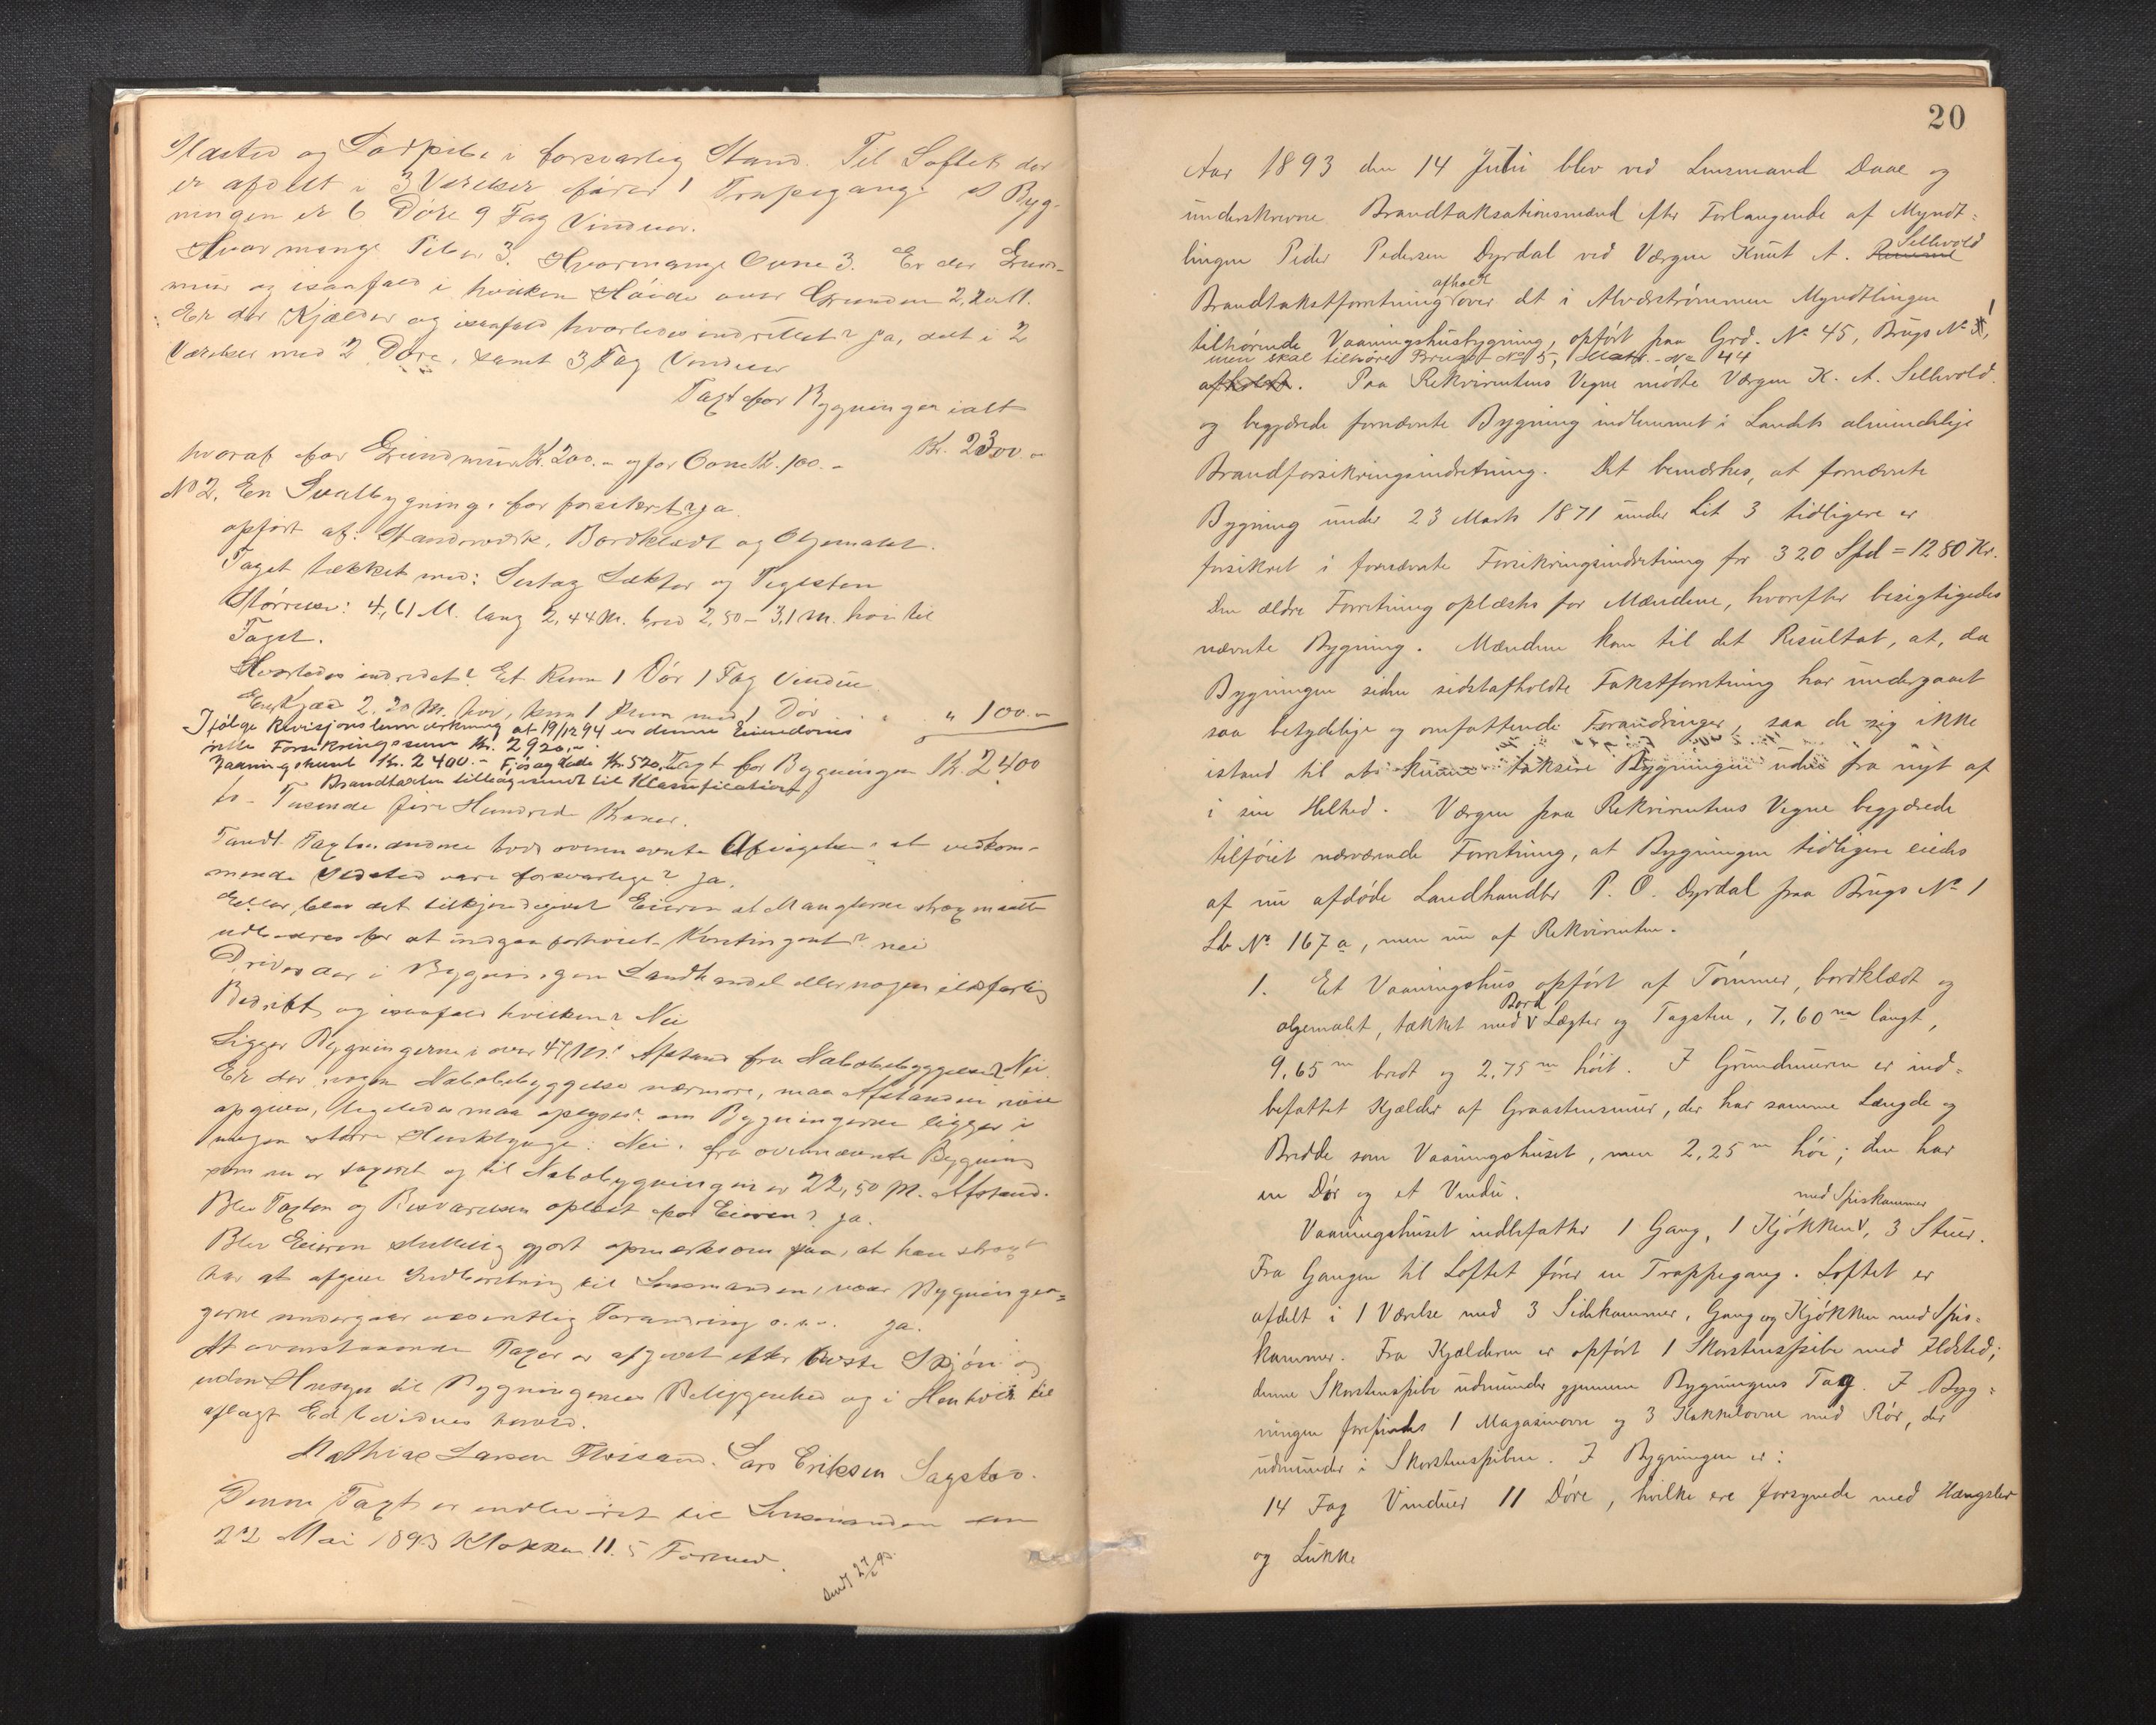 Ildsted og Ladpibe i forsvarlig Stand. Til Loftet der
er afdelt i 3 Værelser fører 1 Trapegang. I Byg-
ningen er 6 Døre 9 Fag Vinduer.
Hvor mange Piber 3. Hvormange Ovne 3. Er der Grund-
mur og isaafald i hvilken Høide over Grunden 2,20 M.
Er der Kjælder og isaafald hvorledes indrettet? Ja, delt i 2
Værelser med 2 Døre, samt 3 Fag Vinduer
Taxt for Bygningen ialt
hvoraf for Grundmur Kr. 200.- og for Ovne Kr. 100.- Kr. 2300.-
No 2. En Svalbygning, før forsikret? Ja.
opført af: Standværk, Bordklædt og Oljemalet.
Taget tækket med: Lægter og Tegelsten
Størrelse: 4,61 M. lang 2,44 M. bred 2,50 - 3,1 M. høi til
Taget.
Hvorledes indredet? Et Rum 1 Dør 1 Fag Vindu
En Kjæld 2.20 M. høi, 1 Rum med 1 Dør " " 100.-
Ifølge Revisjonsbemærkning af 19/12 94 er denne Eiendoms
rette Forsikringssum Kr. 2920,-.
Vaaningshuset Kr. 2400.- Fjøs og Lade Kr. 520. Taxt for Bygningen Kr. 2400
Brandtaxten tillægsendt til Klassifikation
to - Tusende fire Hundrede Kroner.
Fandt Taxtmændene hvor ovennævnte Afvigelser, at vedkom-
mende Ildsted være forsvarlige? Ja.
Eller blev det tilkjendegivet Eieren at Manglerne strax maatte
udbedres for at undgaa forhøiet Kontingent? nei
Drives der i Bygningen Landhandel eller nogen ildsfarlig
Bedrift, og isaafald hvilken? Nei
Ligger Bygningerne i over 47 M. Afstand fra Nabobebyggelse? Nei.
Er der nogen Nabobebyggelse nærmere, maa Afstanden nøie
opgives, ligeledes maa oplyses om Bygningerne ligger i
nogen større Husklynge: Nei. fra ovennævnte Bygning
som nu er taxeret og til Nabobygningen er 22,50 M. Afstand.
Blev Taxten og Besvarelsen oplæst for Eieren? Ja.
Blev Eieren skriftlig gjort opmærksom paa, at han strax
har at afgive Indberetning til Lensmanden, naar Bygnin-
gerne undergaar væsentlig Forandring o.s.v. Ja.
At ovenstaaende Taxer er afgivet efter bedste Skjøn og
uden Hensyn til Bygningernes Beliggenhed og i Henhold til
aflagt Ed bevidnes herved.
Mathias Larsen Lars Eriksen Sagstad.
Denne Taxt er indleveret til Lensmanden den
22 Mai 1893 Klokken 11.5 Formd.
Sendt 27/5 93.
20
Aar 1893 den 14 Juli blev ved Lensmand Daae og
underskrevne Brandtaksationsmænd efter Forlangende af Myndt-
lingen Peder Pedersen Dyrdal ved Værgen Knut A. Sellevold
Brandtakstforretning afholdt over det i Alverstrømmen Myndtlingen
tilhørende Vaaningshusbygning, opført paa Grd. No 45, Brugs No 1,
men skal tilhøre Bruget No 5, Matr. No 44
afholdt. Paa Rekvirentens Vegne mødte Værgen K. A. Sellevold
og begjærede fornævnte Bygning indlemmet i Landets almindelige
Brandforsikringsindretning. Det bemærkes, at fornævnte
Bygning under 23 Marts 1871 under Lit 3 tidligere er
forsikret i fornævnte Forsikringsindretning for 320 Spd = 1280 Kr.
Den ældre Forretning oplæstes for Mændene, hvorefter besigtigedes
nævnte Bygning. Mændene kom til det Resultat, at, da
Bygningen siden sidstafholdte Takstforretning har undergaaet
saa betydelige og omfattende Forandringer, saa de sig ikke
istand til at kunne taksere Bygningen uden fra nyt af
i sin Helhed. Værgen paa Rekvirentens Vegne begjærede
tilføiet nærværende Forretning, at Bygningen tidligere eiedes
af nu afdøde Landhandler P. O. Dyrdal paa Brugs No 1
Lb No 167a, men nu af Rekvirenten.
1. Et Vaaningshus opført af Tømmer, bordklædt og
oljemalet, tækket med Bord Lægter og Tagsten, 7,60 m langt,
9,65 m bredt og 2,75 m høit. I Grundmuren er ind-
befattet Kjælder af Graastensmur, der har samme Længde og
Bredde som Vaaningshuset, men 2,25 m høi; den har
en Dør og et Vindu.
Vaaningshuset indbefatter 1 Gang, 1 Kjøkken med Spiskammer, 3 Stuer.
Fra Gangen til Loftet fører en Trappegang. Loftet er
afdelt i 1 Værelse med 3 Sidekammer, Gang og Kjøkken med Spis-
kammer. Fra Kjælderen er opført 1 Skorstenspibe med Ildsted;
denne Skorstenspibe udmunder gjennem Bygningens Tag. I Byg-
ningen forefindes 1 Magasinovn og 3 Kakkelovne med Rør, der
udmunder i Skorstenspiben. I Bygningen er:
14 Fag Vinduer 11 Døre, hvilke ere forsynede med Hængsler
og Lukke